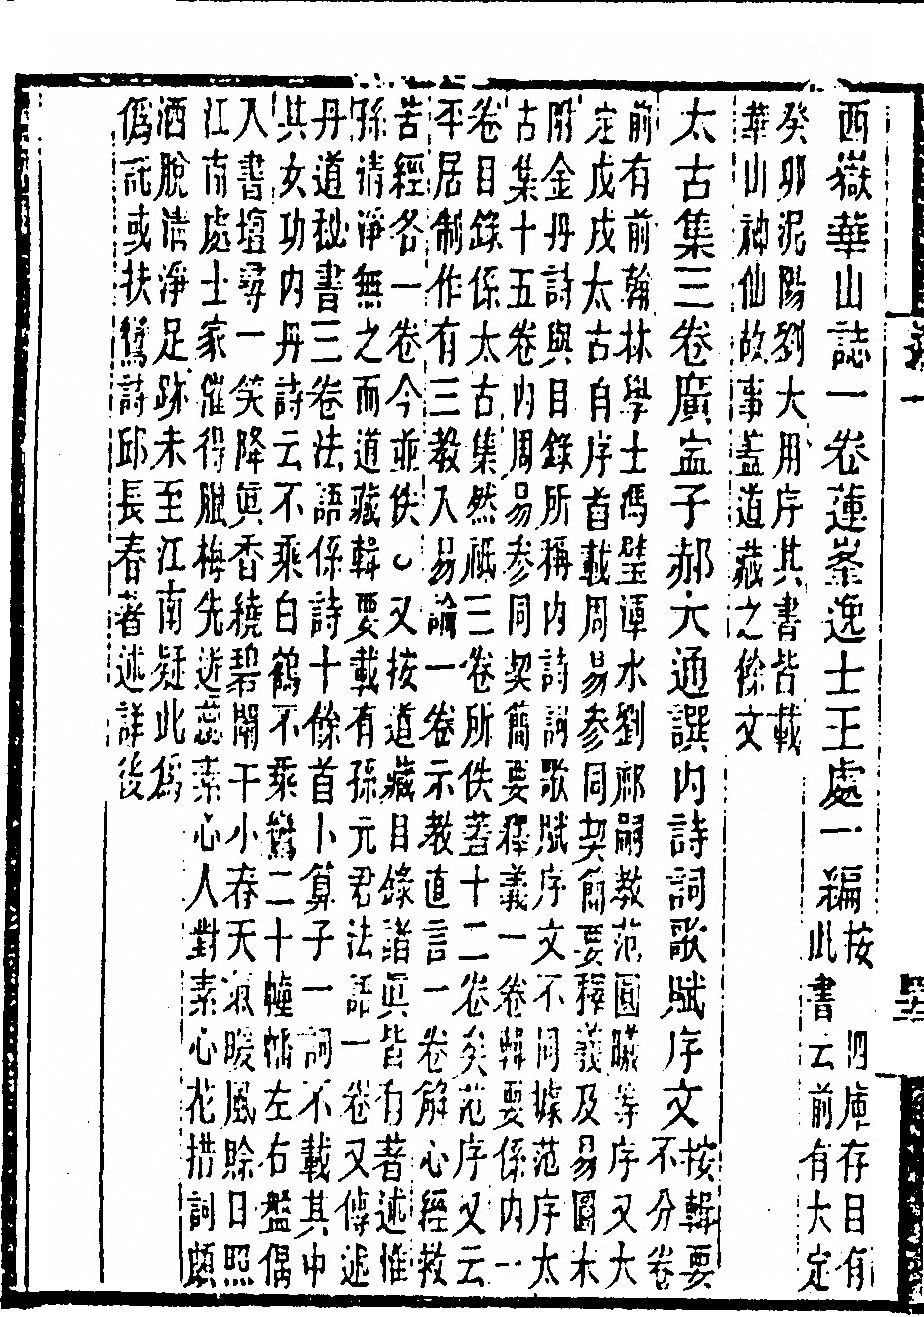 西嶽華山誌一卷蓮峯逸士王處一編
按四庫存目有
此書云前有大定
癸卯泥陽劉大用序其書皆載
華山神仙故事蓋道藏之餘文
太古集三卷廣寍子郝大通譔內詩詞歌賦序文
按輯要
不分卷
前有前翰林學士馮璧渾水劉祁嗣教范圓曦等序又大
定戊戌太古自序首載周易參同契簡要釋義及易圖末
開金丹詩與目錄所稱內詩詞歌賦序文不同據范序太
古集十五卷內周易參同契簡要釋義一卷輯要係內一
卷目錄係太古集然祇三卷所佚葢十二卷矣范序又云
平居制作有三教入易論一卷示教直言一卷解心經救
苦經各一卷今並佚○又按道藏目錄諸眞皆有著述惟
孫清淨無之而道藏輯要載有孫元君法語一卷又傳述
丹道秘書三卷法語係詩十餘首卜算子一詞不載其中
其女功內丹詩云不乘白鶴不乘鸞二十幢幡左右盤偶
入書壇尋一笑降眞香繞碧闌干小春天氣暖風賒日照
江南處士家催得臘梅先迸蕊素心人對素心花措詞頗
洒脫清淨足跡未至江南疑此爲
僞託或扶鸞詩邱長春著述詳後